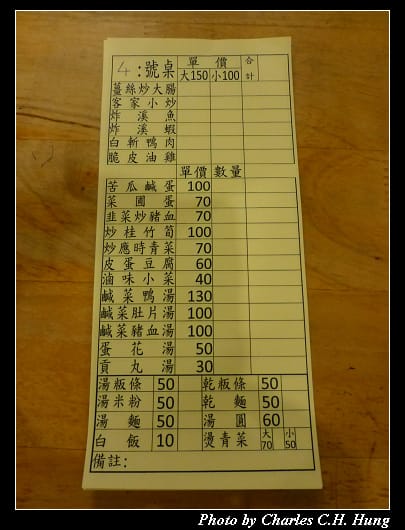 4:號桌 單價 合計
大150 小100
薑絲炒大腸
客家小炒
炸溪魚
炸溪蝦
白斬鴨肉
脆皮油雞
單價 數量
苦瓜鹹蛋 100
菜圃蛋 70
韭菜炒豬血 70
炒桂竹筍 100
炒應時青菜 70
皮蛋豆腐 60
滷味小菜 40
鹹菜鴨湯 130
鹹菜肚片湯 100
鹹菜豬血湯 100
蛋花湯 50
貢丸湯 30
湯粄條 50 乾粄條 50
湯米粉 50 乾麵 50
湯麵 50 湯圓 60
白飯 10 燙青菜 大70 小50
備註:
Photo by Charles C.H. Hung